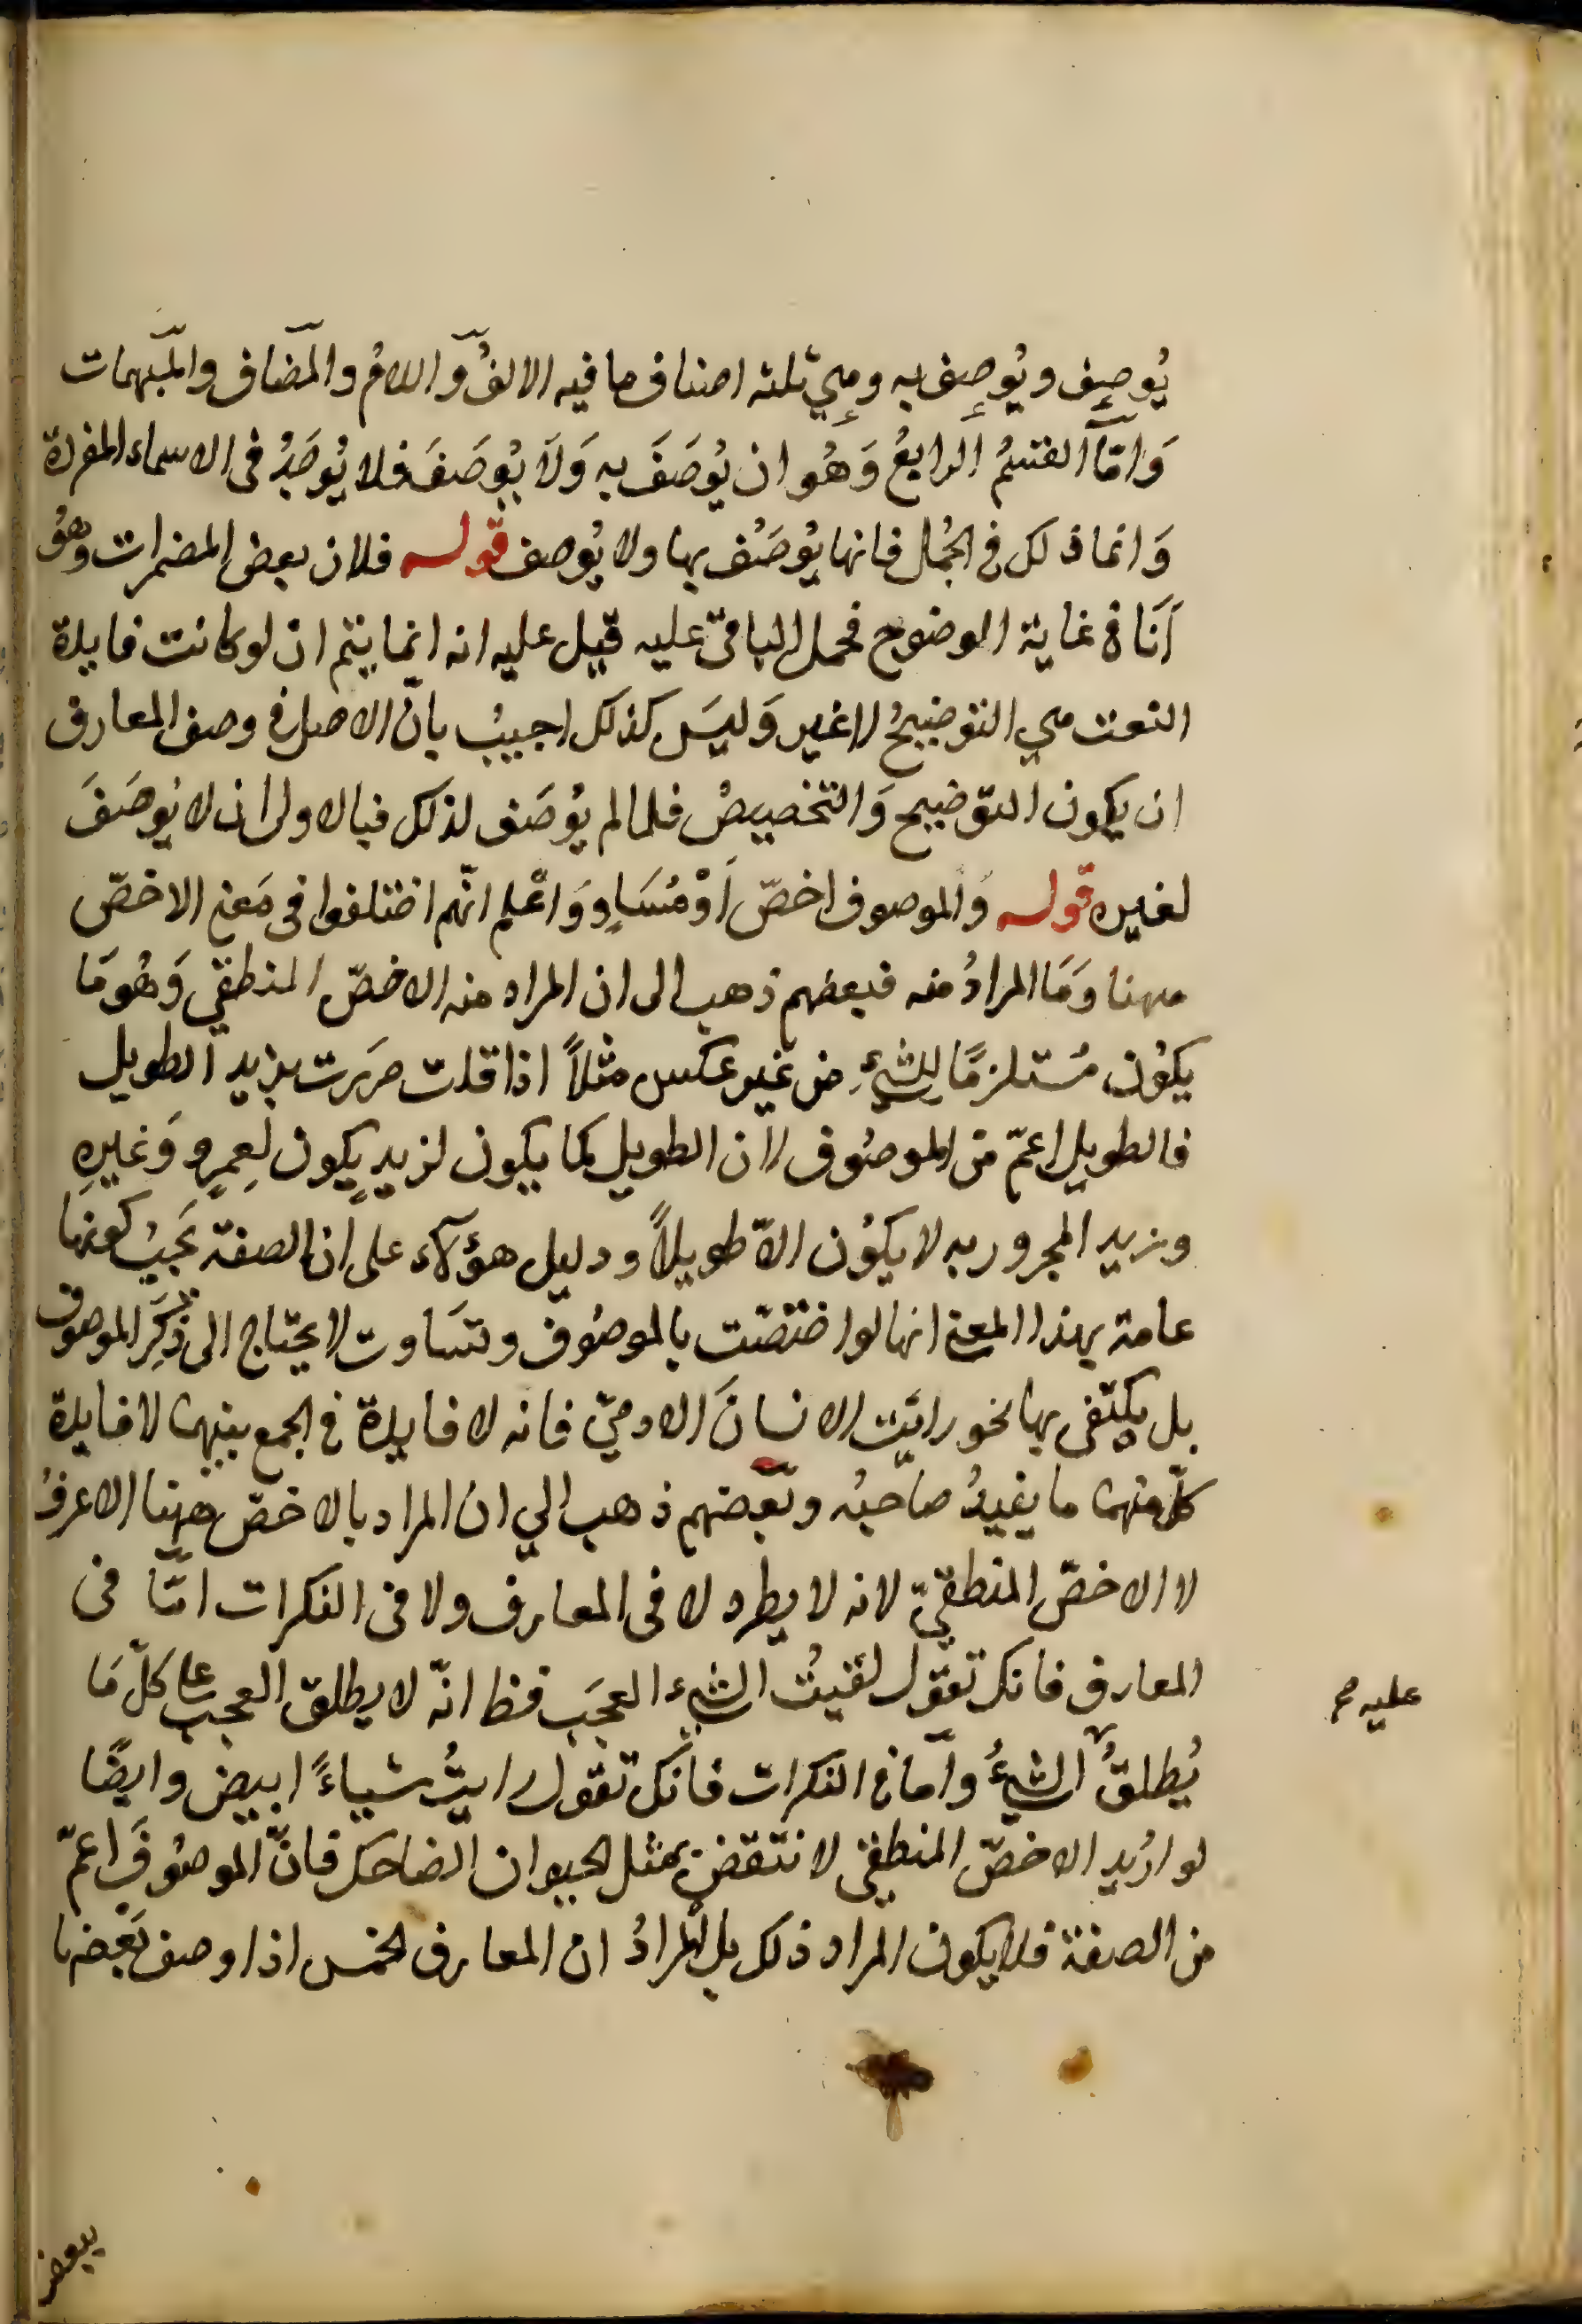 يُوصِف ويُوصِف به وهي ثلثه اصناف ما فيه الالفُ واللامُ والمضَاف والمبهمات
وَامَّا القسمُ الرابعُ وَهُو ان يُوصَفَ به وَلَا يُوصَفَ فلا يُوجَدُ فى الاسماء المفردة
وَانما ذلك فى الجُمل فانها يُوصَفُ بها ولا يُوصف قوله فلان بعض المضمرات وهُو
اَنَا فى غاية الوضوح فحمل الباقىّ عليه قيل عليه انه انما يتم ان لو كانت فايدة
النعت هي التوضيحُ لا غير وَليسَ كذلك اجيبُ بانّ الاصل فى وصف المعارف
ان يكون التوضيح وَالتخصيصُ فلما لم يُوصَف لذلك فبالاولى ان لا يُوصَفَ
لغيره قوله وَالموصوف اخصّ اَوْ مُسَاوٍ وَاعْلم انّهم اختلفوا فى مَعنى الاخصّ
ههنا وَمَا المرادُ منه فبعضهم ذهب الى ان المراد منه الاخصّ المنطقي وَهُو مَا
يكوُن مُستلزمًا للشيءِ من غير عكس مثلاً اذا قلت مررت بزيد الطويل
فالطويل اعمّ من الموصُوف لان الطويل كما يكون لزيدٍ يكون لعمرٍو وَغيرِه
وزيد المجرور به لا يكوُن الاّ طويلاً ودليل هؤلآء على ان الصفة يَجبُ كونها
عامة بهذا المعنى انها لو اختصّت بالموصُوف وتسَاوت لا يحتاج الى ذكَرِ الموصوف
بل يكتفى بها نحو رايَت الانسانَ الادميّ فانه لا فايدة فى الجمع بينهما لافايدة
كلّ منهما ما يفيدُ صاحبُه وبَعضهم ذهب الي ان المراد بالاخصّ ههنا الاعرفُ
لا الاخصّ المنطقيّ لانه لا يطرد لا فى المعارف ولا فى النكرات امّا فى
المعارف فانك تقول لقيتُ الشيء العجَب فظ انّه لا يطلق العجب على كلّ مَا
يُطلقُ الشيءُ وامّا فى النكرات فانك تقول رايتُ شياءً ابيض وايضًا
عليه صح
لو اُريد الاخصّ المنطقى لانتقض بمثل الحيوان الضاحك فانّ الموصُوفَ اعمّ
من الصفة فلا يكون المراد ذلك بل المرادُ ان المعارف الخمس اذا وصف بَعضها
ببعض